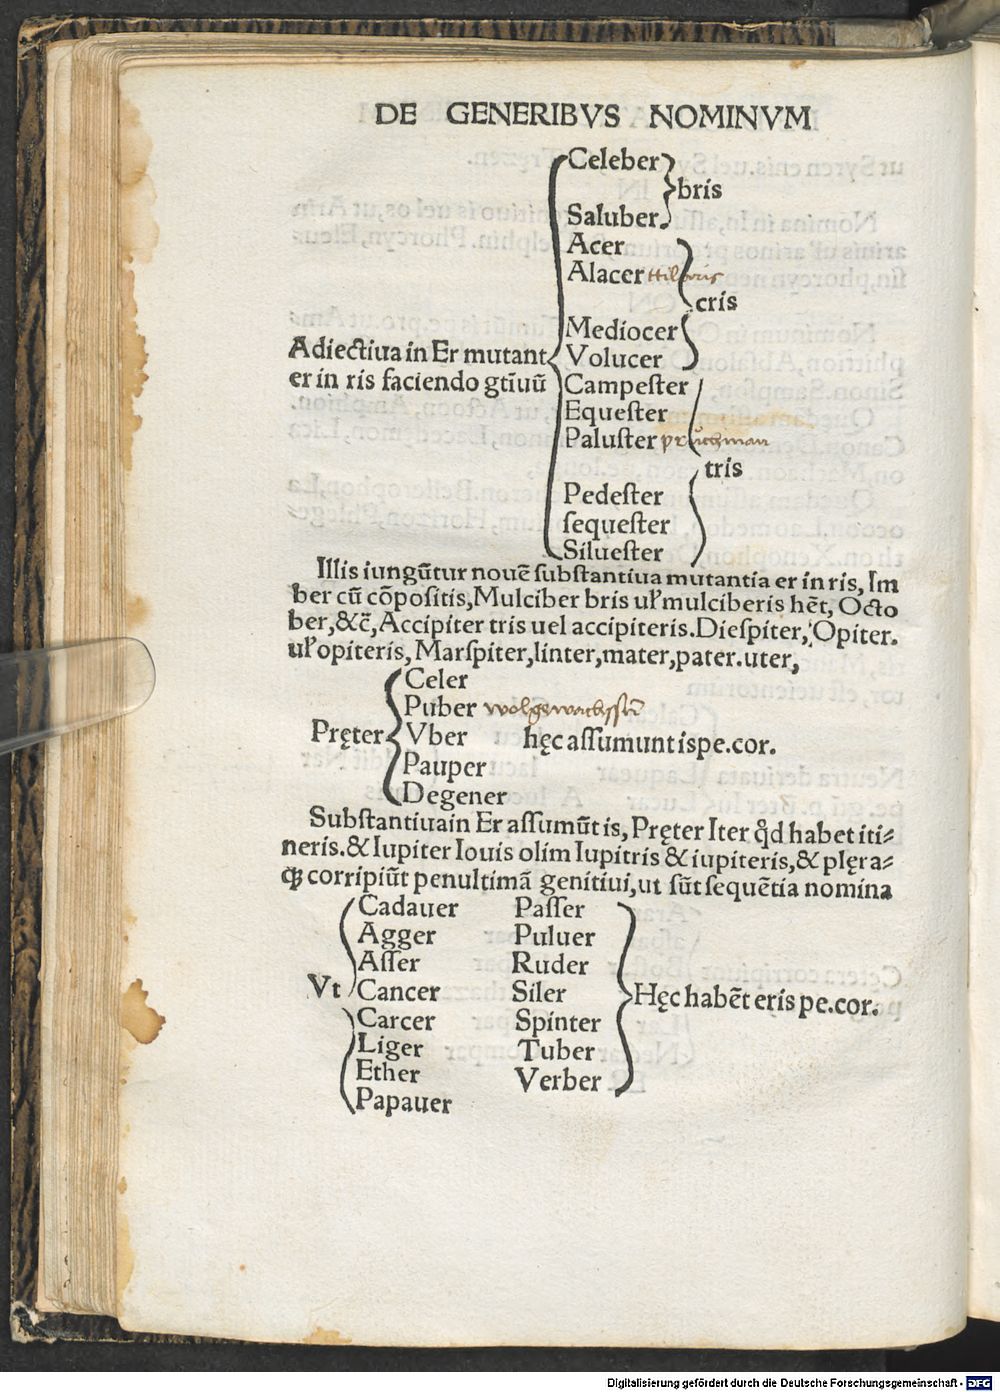 DE GENERIBVS NOMINVM
Celeber
bris
Saluber
Acer
Alacer
cris
Mediocer
Adiectiua in Er mutant
Volucer
er in ris faciendo gtĩuũ
Campester
Equester
Paluster
tris
Pedester
sequester
Siluester
Illis iungũtur nouẽ substantiua mutantia er in ris, Im
ber cũ cõpositis, Mulciber bris uł mulciberis hẽt, Octo
ber, &c̃, Accipiter tris uel accipiteris. Diespiter, Opiter.
uł opiteris, Marspiter, linter, mater, pater. uter,
Celer
Puber
Pręter
Vber
hęc assumunt is pe. cor.
Pauper
Degener
Substantiua in Er assumũt is, Pręter Iter qd̓ habet iti⸗
neris. & Iupiter Iouis olim Iupitris & iupiteris, & plęra⸗
qꝫ corripiũt penultimã genitiui, ut sũt sequẽtia nomina
Cadauer Passer
Agger Puluer
Asser Ruder
Vt Cancer Siler Hęc habẽt eris pe. cor.
Carcer Spinter
Liger Tuber
Ether Verber
Papauer
Digitalisierung gefördert durch die Deutsche Forschungsgemeinschaft - DFG